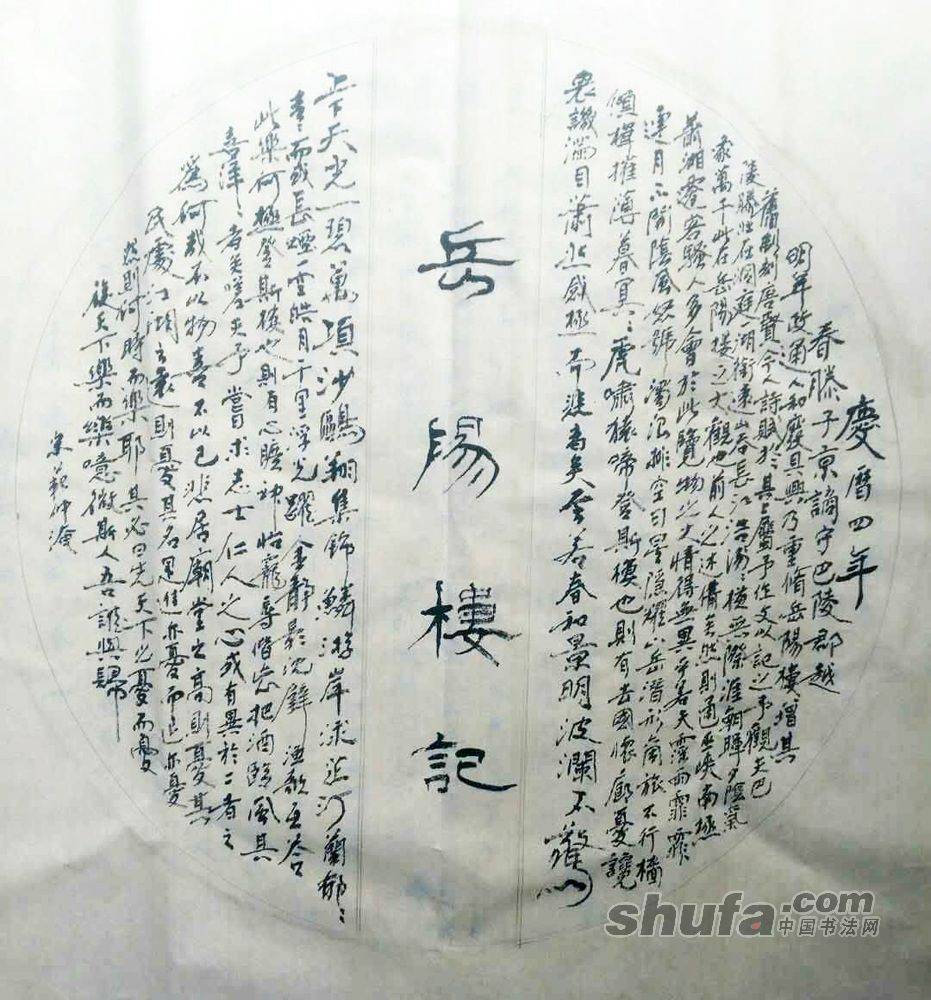 慶曆四年
春滕子京謫守巴陵郡越
明年政通人和廢具興乃重脩岳陽樓增其
舊制刻唐賢今人詩賦於其上屬予作文以記之予觀夫巴
陵勝狀在洞庭一湖銜遠山吞長江浩湯：橫無際涯朝暉夕陰氣
象萬千此在岳陽樓之大觀也前人之述備矣然則通巫峽南極
瀟湘遷客騷人多會於此覽物之大情得無異乎若夫霪雨霏霏
連月不開陰風怒號濁浪排空日星隱耀山岳潛形商旅不行檣
傾楫摧薄暮冥：虎嘯猿啼登斯樓也則有去國懷鄉憂讒
畏譏滿目蕭然感極而悲者矣至若春和景明波瀾不驚
岳陽樓記
上下天光一碧萬頃沙鷗翔集錦鱗游岸芷汀蘭郁：
青：而或長煙一空皓月千里浮光躍金靜影沈璧漁歌互答
此樂何極登斯樓也則有心曠神怡寵辱皆忘把酒臨風其
喜洋：者矣嗟夫予嘗求志士仁人之心或有異於二者之
為何哉不以物喜不以己悲居廟堂之高則憂其
民處江湖之遠則憂其君是進亦憂而退亦憂
然則何時而樂耶其必曰先天下之憂而憂
後天下樂而樂噫微斯人吾誰與歸
宋范仲淹
shufa.com
中国书法网